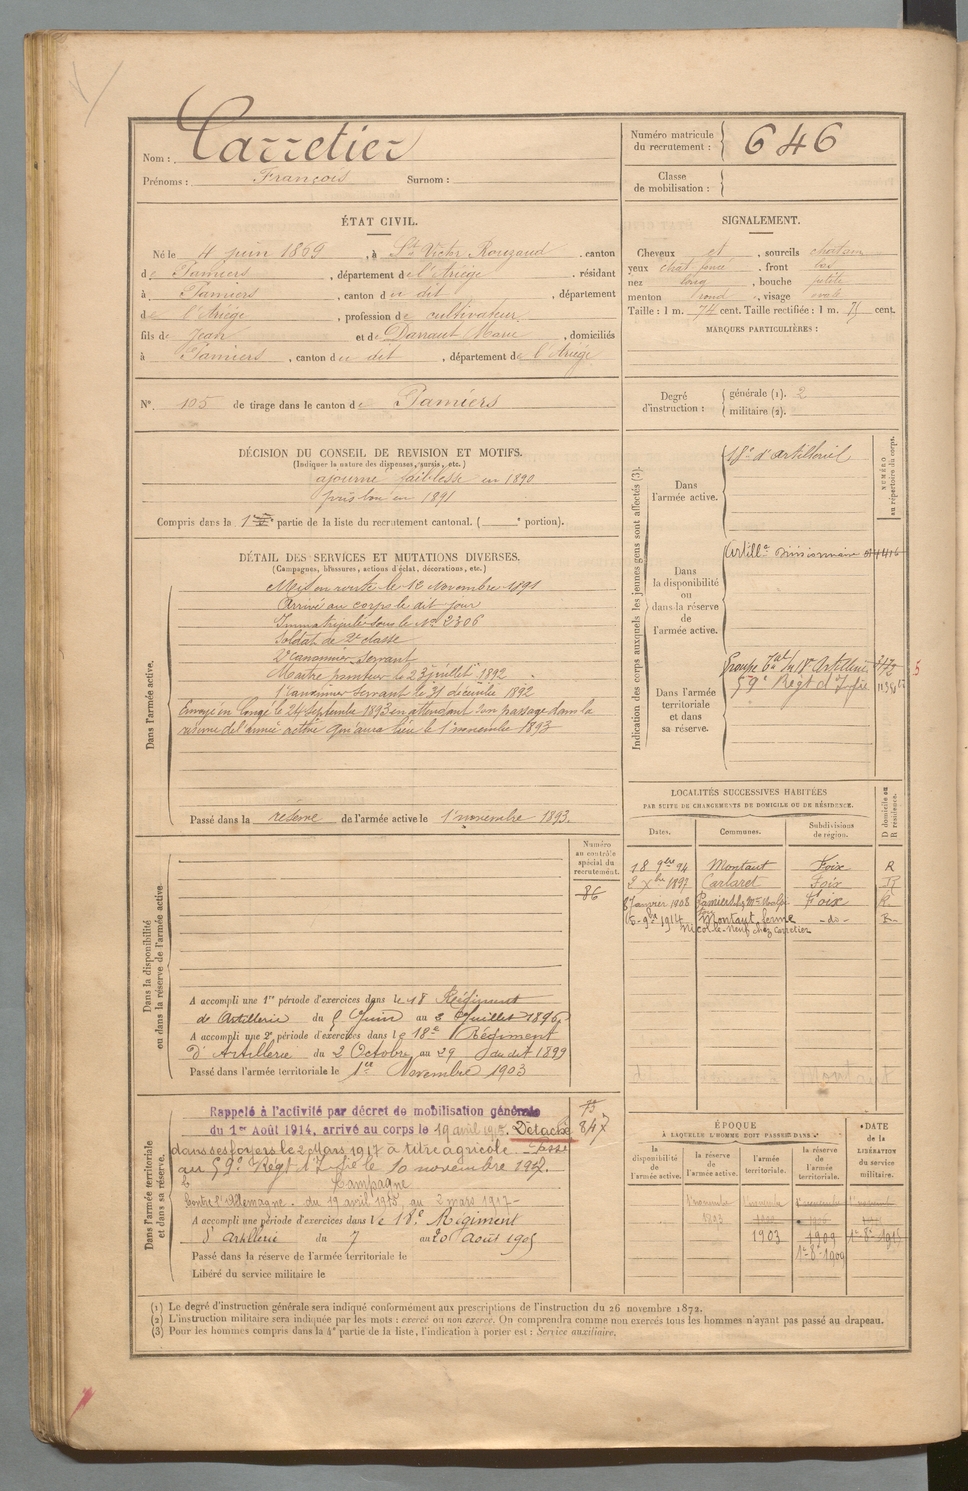 Nom : Carretier
Prénoms : François Surnom :
Numéro matricule du recrutement : 646
Classe de mobilisation :
ÉTAT CIVIL.
Né le 4 juin 1869, à St Victor Rouzaud, canton
de Pamiers, département de l'Ariège, résidant
à Pamiers, canton du dit, département
de l'Ariège, profession de cultivateur
fils de Jean et de Darraut Marie, domiciliés
à Pamiers, canton du dit, département de l'Ariège
SIGNALEMENT.
Cheveux et, sourcils chatain
yeux chat foncé, front bas
nez long, bouche petite
menton rond, visage ovale
Taille : 1 m. 74 cent. Taille rectifiée : 1 m. 75 cent.
MARQUES PARTICULIÈRES :
N°. 105 de tirage dans le canton de Pamiers
Degré d'instruction : générale (1). 2
militaire (2).
DÉCISION DU CONSEIL DE REVISION ET MOTIFS.
(Indiquer la nature des dispenses, sursis, etc.)
ajourné faiblesse en 1890
pris bon en 1891
Compris dans la 1re partie de la liste du recrutement cantonal. ( e portion).
DÉTAIL DES SERVICES ET MUTATIONS DIVERSES.
(Campagnes, blessures, actions d'éclat, décorations, etc.)
Dans l'armée active.
Mis en route le 12 Novembre 1891
Arrivé au corps le dit jour
Immatriculé sous le No 2306
Soldat de 2e classe
2e Canonnier Servant
Maitre pointeur le 23 juillet 1892
1er Canonnier Servant le 31 décembre 1892
Envoyé en Congé le 24 Septembre 1893 en attendant son passage dans la
réserve de l'armée active qui aura lieu le 1er novembre 1893
Passé dans la réserve de l'armée active le 1er novembre 1893.
Indication des corps auxquels les jeunes gens sont affectés (3).
NUMÉRO au répertoire du corps.
Dans l'armée active.
18e d'Artillerie
Dans la disponibilité ou dans la réserve de l'armée active.
Artillie Divisionnaire
Dans l'armée territoriale et dans sa réserve.
Groupe Tal du 18e Artillerie
59e Régt d'Infie
5
LOCALITÉS SUCCESSIVES HABITÉES
PAR SUITE DE CHANGEMENTS DE DOMICILE OU DE RÉSIDENCE.
Dates. Communes. Subdivisions de région. D domicile ou R résidence.
18 9bre 94 Montaut Foix R
2 Xbre 1897 Carlaret Foix R
8 Janvier 1908 Pamiers Foix R.
15-9bre 1914 Montaut ferme -do- R.
chez Carretier
Dans la disponibilité ou dans la réserve de l'armée active
Numéro au contrôle spécial du recrutement.
86
A accompli une 1re période d'exercices dans le 18e Régiment
de Artillerie du 5 Juin au 2 Juillet 1896
A accompli une 2e période d'exercices dans le 18e Régiment
d'Artillerie du 2 Octobre au 29 du dit 1899
Passé dans l'armée territoriale le 1er Novembre 1903
Dans l'armée territoriale et dans sa réserve.
Rappelé à l'activité par décret de mobilisation générale
du 1er Août 1914, arrivé au corps le 19 avril 1915. Détaché
dans ses foyers le 2 Mars 1917 à titre agricole. Passé
au 59e Régt d'Infie le 10 novembre 1917.
847
Campagne
Contre l'Allemagne. du 19 avril 1915 au 2 mars 1917-
A accompli une période d'exercices dans le 18e Régiment
d'Artillerie du 7 au 20 Août 1905
Passé dans la réserve de l'armée territoriale le
Libéré du service militaire le
ÉPOQUE
A LAQUELLE L'HOMME DOIT PASSER DANS :
la disponibilité de l'armée active. la réserve de l'armée active. l'armée territoriale. la réserve de l'armée territoriale.
DATE de la LIBÉRATION du service militaire.
1er novembre 1er novembre 1er novembre 1er novembre
1893
1903 1909 1er-8e-1915
1er-8e-1909
(1) Le degré d'instruction générale sera indiqué conformément aux prescriptions de l'instruction du 26 novembre 1872.
(2) L'instruction militaire sera indiquée par les mots : exercé ou non exercé. On comprendra comme non exercés tous les hommes n'ayant pas passé au drapeau.
(3) Pour les hommes compris dans la 4e partie de la liste, l'indication à porter est : Service auxiliaire.